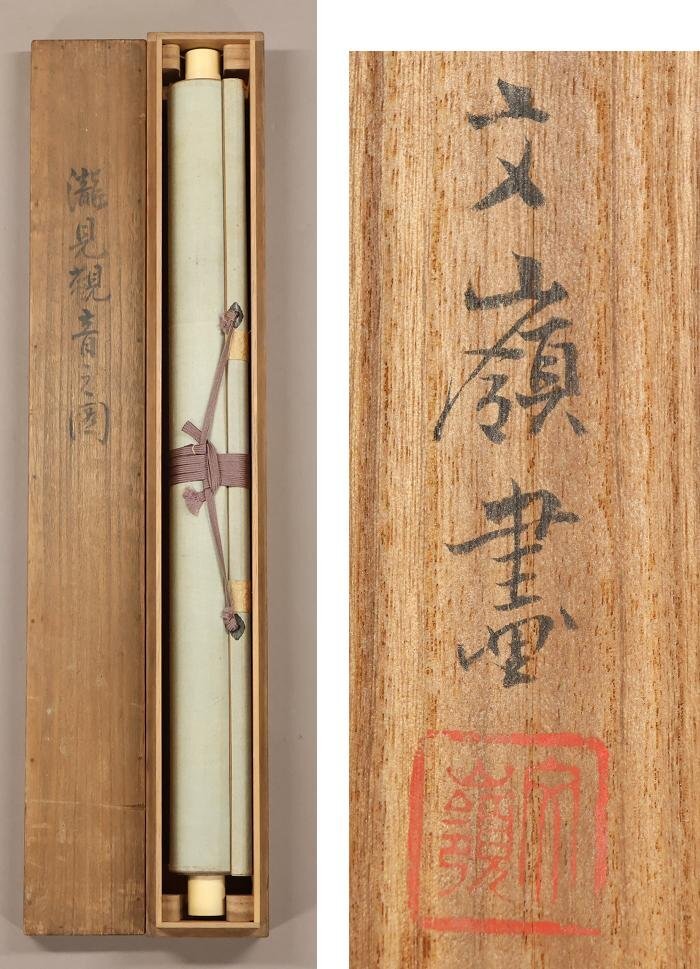 瀧見観音之図
文嶺畫
文嶺